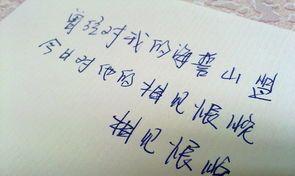 曾经对我的海誓山盟
今日对他的相见恨晚
相见恨晚